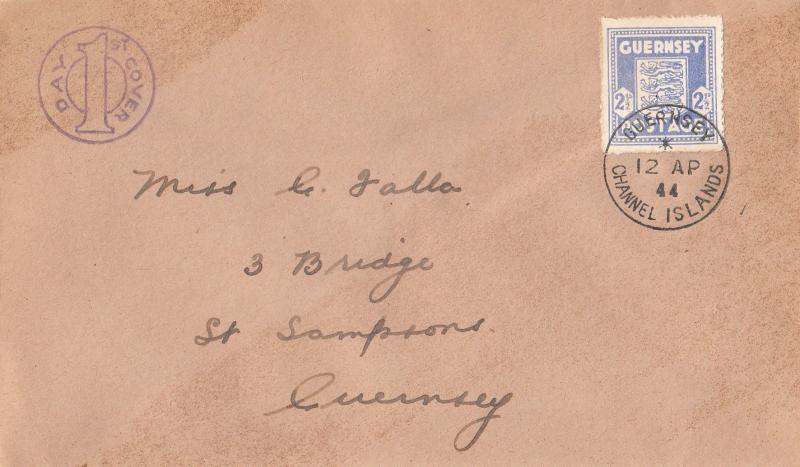 1ST DAY COVER
GUERNSEY
2½ 2½
POSTAGE
GUERNSEY
12 AP
44
CHANNEL ISLANDS
Miss C. Falla
3 Bridge
St Sampsons.
Guernsey